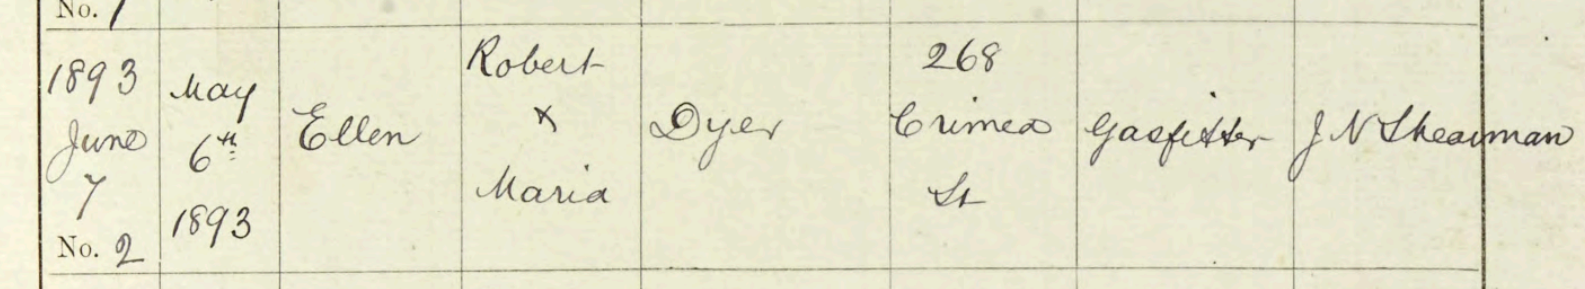 No. 1
1893
June
7
No. 2
May
6th
1893
Ellen
Robert
x
Maria
Dyer
268
Crimea
St
Gasfitter
J N Shearman